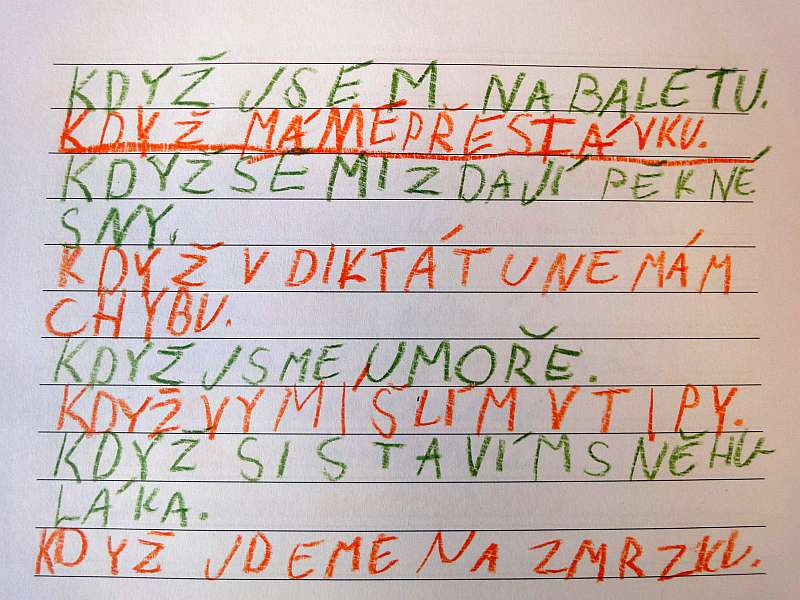 KDYŽ JSEM NA BALETU.
KDYŽ MÁMEPŘESTÁVKU.
KDYŽ SE MI ZDAJÍ PEKNÉ
SNY.
KDYŽ V DIKTÁTU NEMÁM
CHYBU.
KDYŽ JSME UMOŘE.
KDYŽ VYMISLÍM VTIPY.
KDYŽ SI STAVÍM SNĚHU-
LÁKA.
KDYŽ JDEME NA ZMRZKU.